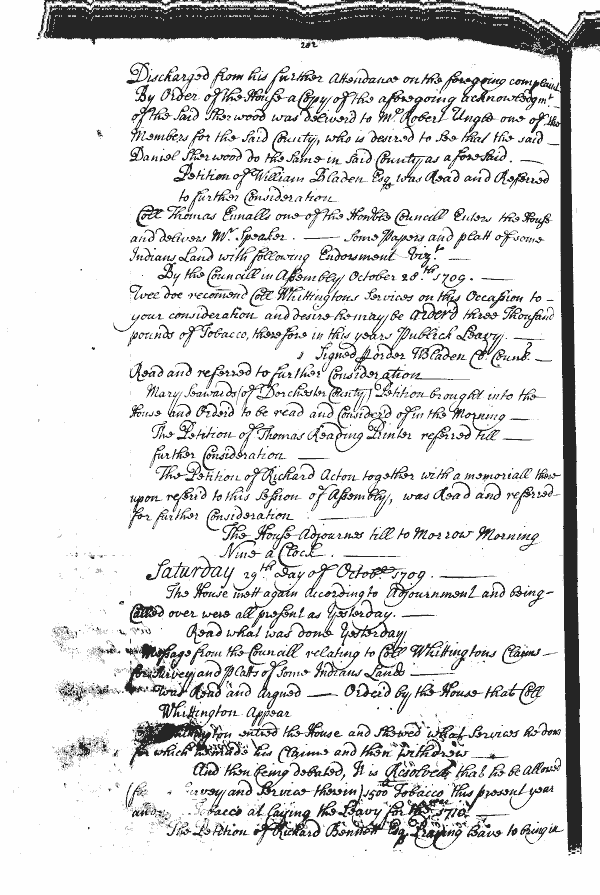 202
Discharged from his further Attendance on the foregoing complaint
By Order of the House a Copy of the aforegoing acknowledgmt
of the said Sherwood was deliverd to Mr. Robert Ungle one of the
Members for the said County, who is desired to See that the said
Daniel Sherwood do the same in said County as aforesaid.
Petition of William Bladen Esqr was Read and Referred
to further Consideration
Coll Thomas Ennalls one of the Honble Councill Enters the House
and delivers Mr. Speaker. Some Papers and platt of some
Indians Land with following Endorsment Vizt.
By the Councill in Assembly October 28th 1709.
Wee doe recomend Coll Whittingtons Services on this Occasion to
your consideration and desire he may be orderd three Thousand
pounds of Tobacco, therefore in this years Publick Leavy.
Signed order WBladen Cl. Counk
Read and referred to further Consideration
Mary Seawards (of Dorchester County) Petition brought into the
House and Orderd to be read and Considerd of in the Morning
The Petition of Thomas Reading Printer referred till
further Consideration
The Petition of Richard Acton together with a memoriall there
upon referd to this Session of Assembly, was Read and referred
for further Consideration
The House Adjournes till to Morrow Morning
Nine a Clock
Saturday 29th Day of Octobr. 1709.
The House mett again according to Adjournment and being
Called over were all present as Yesterday.
Read what was done Yesterday
Message from the Councill relating to Coll Whittingtons Claime
for Survey and Platts of some Indians Lands
were Read and argued Orderd by the House that Coll
Whittington Appear
entred the House and shewed what Services he done
for which he made his Claime and then withdrew
And then being debated, It is Resolved that he be Allowed
Survey and Service therein) 1500 Tobacco this present year
and Tobacco at laying the Leavy for the year 1710
The Petition of Richard Bennett Esqr Praying leave to bring in